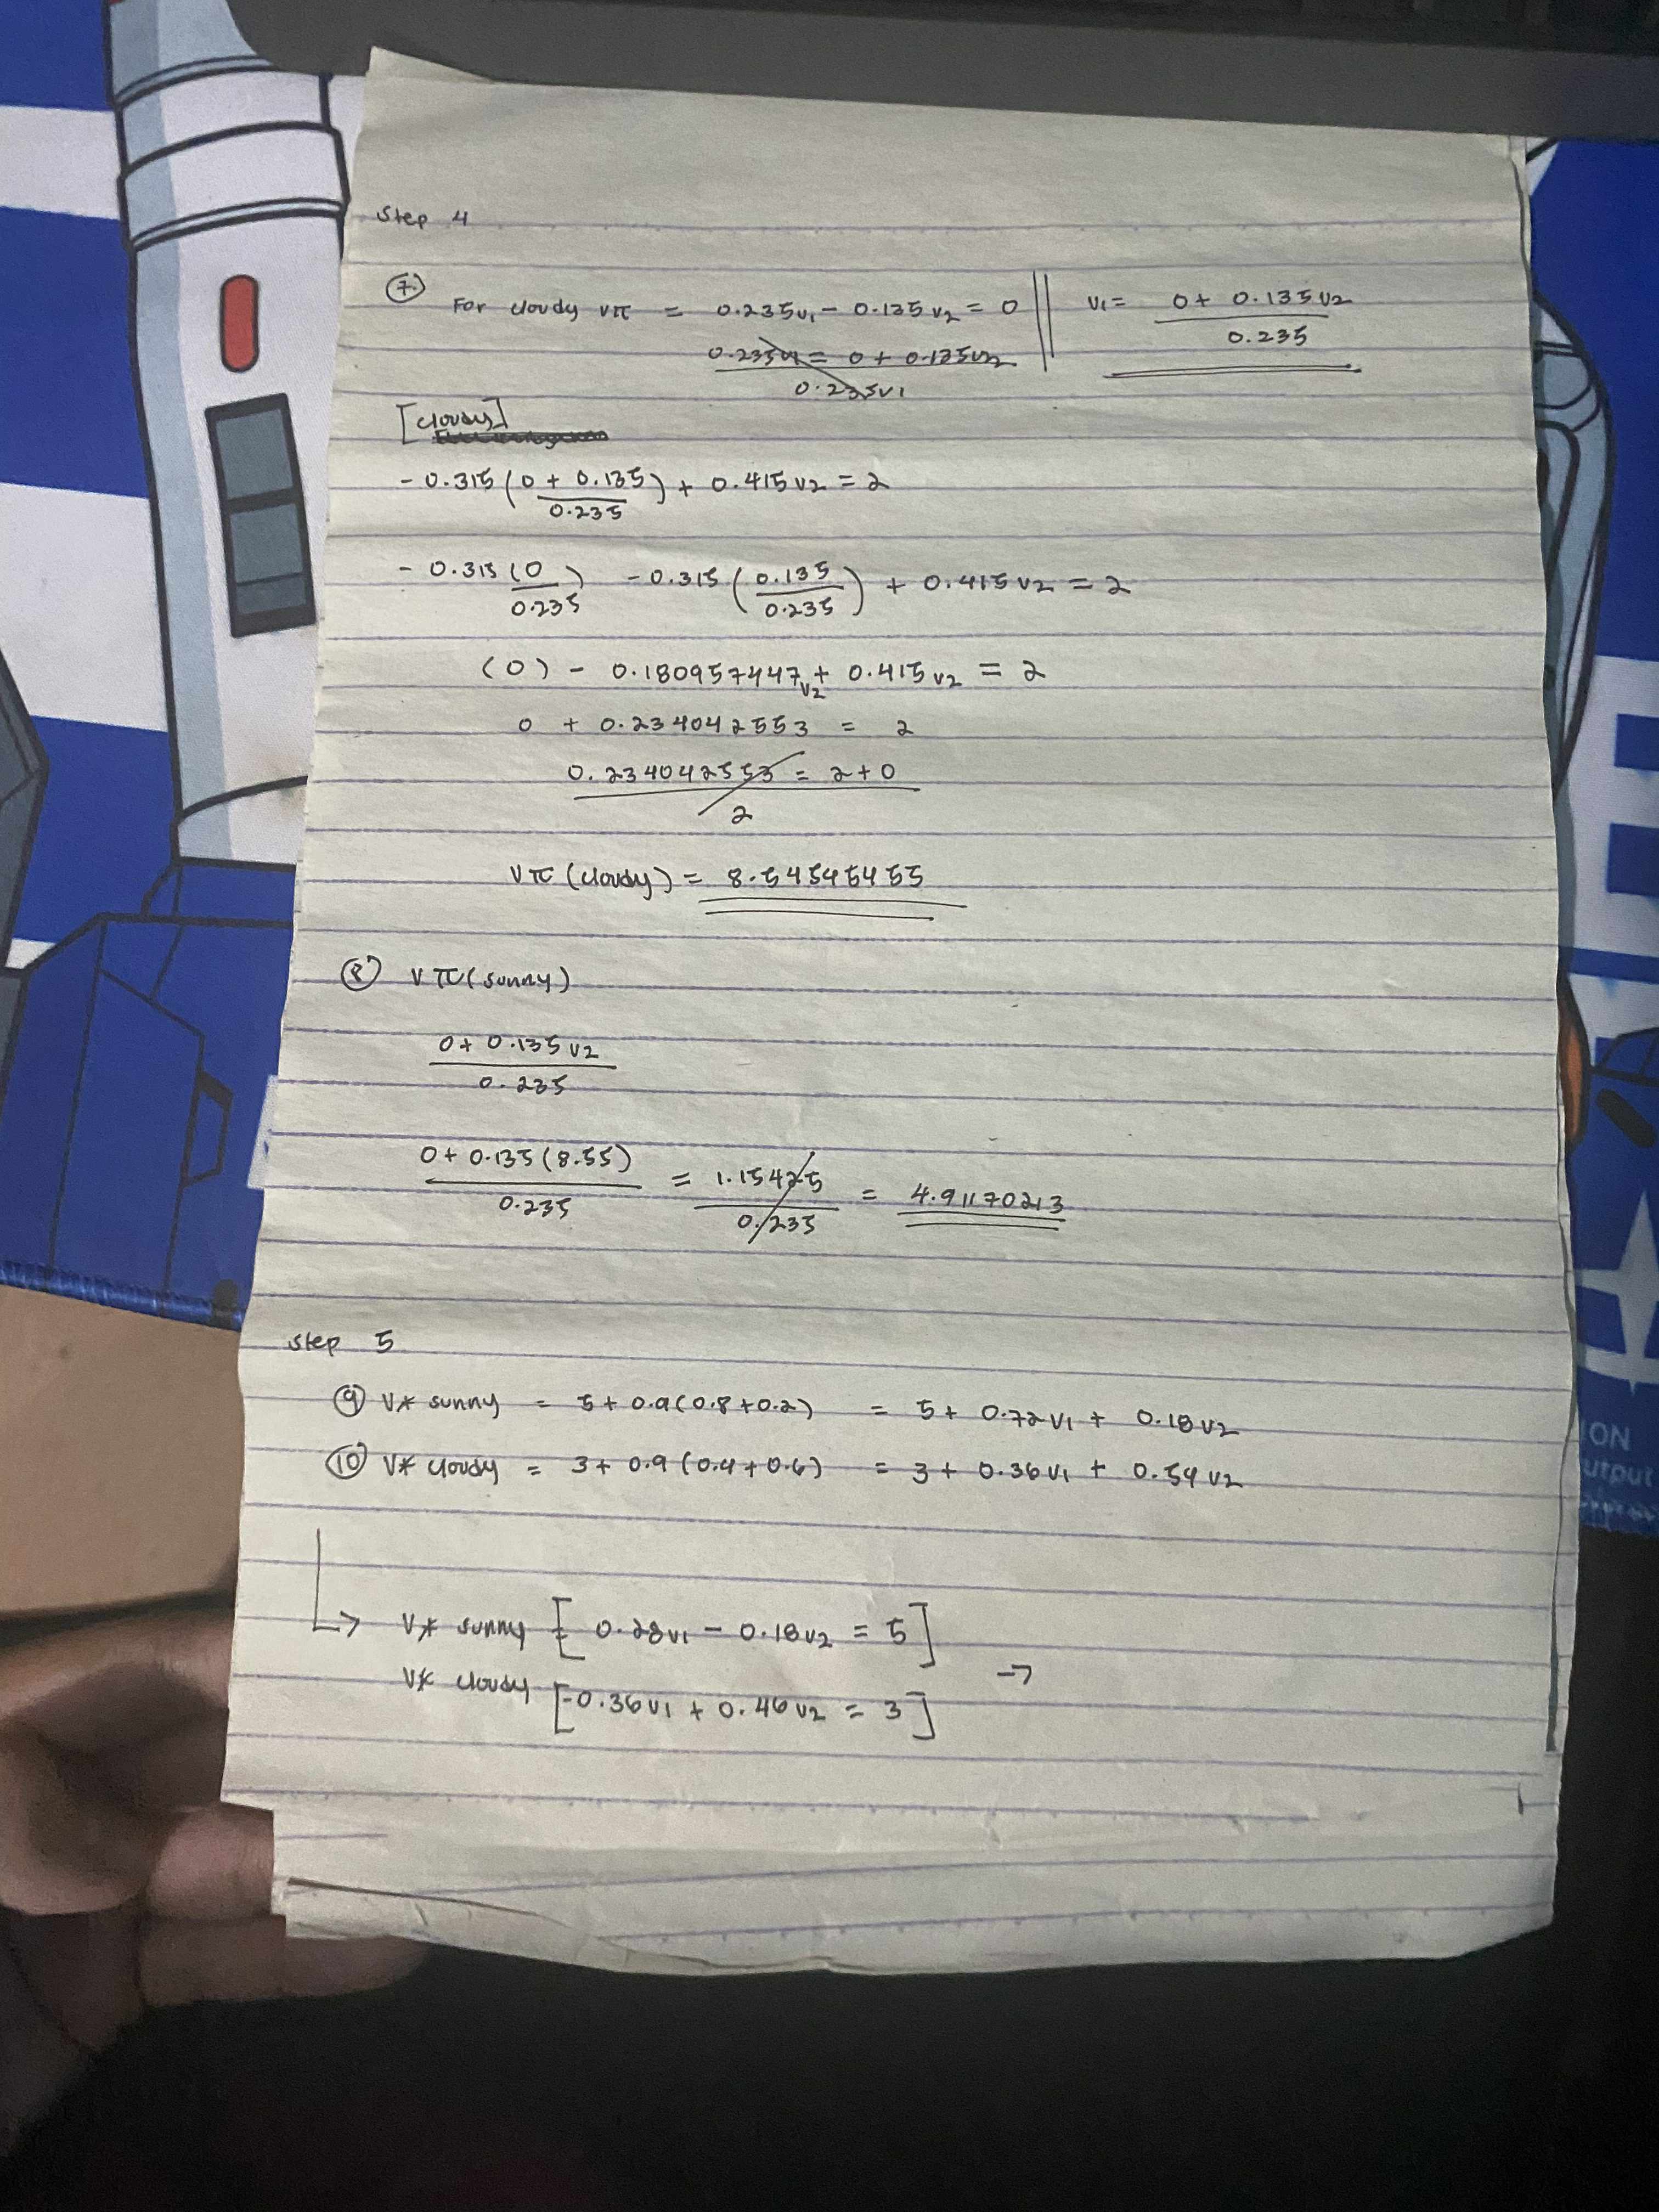 Step 4
7. For cloudy Vπ = 0.235v1 - 0.135v2 = 0 || V1 = 0 + 0.135v2 / 0.235
0.235v1 = 0 + 0.135v2 / 0.235v1
[cloudy]
-0.315 (0 + 0.135 / 0.235) + 0.415v2 = 2
-0.315 (0 / 0.235) -0.315 (0.135 / 0.235) + 0.415v2 = 2
(0) - 0.180957447v2 + 0.415v2 = 2
0 + 0.234042553 = 2
0.234042553 = 2 + 0 / 2
Vπ (cloudy) = 8.545454455
8 Vπ (sunny)
0 + 0.135v2 / 0.235
0 + 0.135 (8.55) / 0.235 = 1.15425 / 0.235 = 4.91170213
Step 5
9 V* sunny = 5 + 0.9(0.8+0.2) = 5 + 0.72v1 + 0.18v2
10 V* cloudy = 3 + 0.9(0.4+0.6) = 3 + 0.36v1 + 0.54v2
→ V* sunny [0.28v1 - 0.18v2 = 5]
V* cloudy [-0.36v1 + 0.46v2 = 3] →
ION
utput